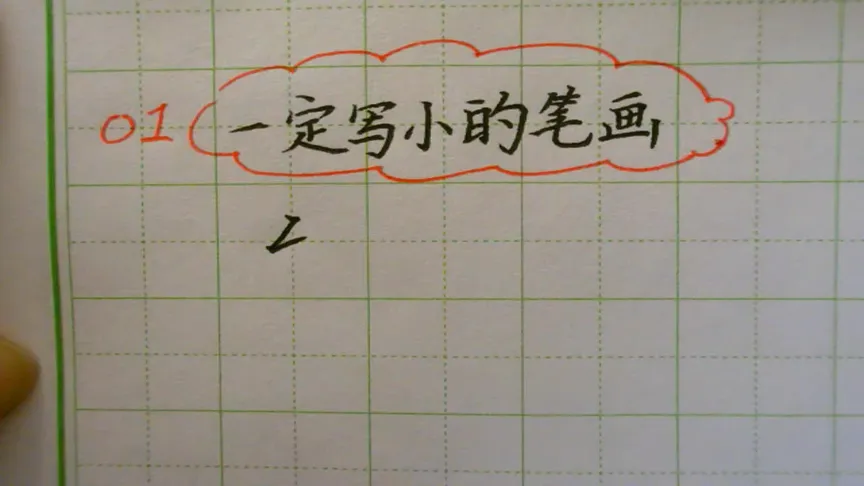 01 一定写小的笔画